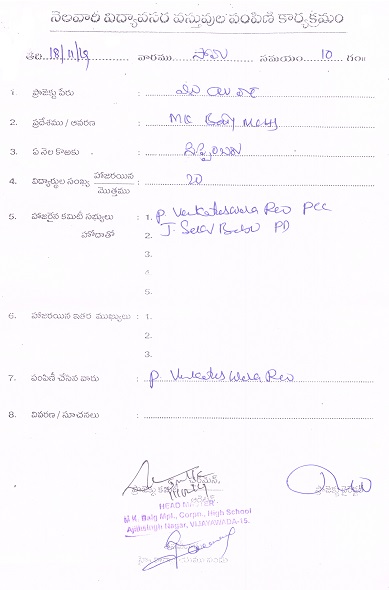 నెలవారీ విద్యావసర వస్తువుల పంపిణీ కార్యక్రమం
తేది. 18/11/19 వారము సోమ సమయం 10 గం॥
1. ప్రాజెక్టు పేరు :
2. ప్రదేశము / ఆవరణ : MK Baig MCHS
3. ఏ నెల కొఱకు : సెప్టెంబర్
4. విద్యార్థుల సంఖ్య హాజరయిన / మొత్తము : 20
5. హాజరైన కమిటీ సభ్యులు : 1. P. Venkateswara Rao PCC
హోదాతో 2. J. Babu PD
3.
4.
5.
6. హాజరయిన ఇతర ముఖ్యులు : 1.
2.
3.
7. పంపిణీ చేసిన వారు : P. Venkateswara Rao
8. వివరణ / సూచనలు :
ప్రాజెక్టు చైర్మన్,
HEAD MASTER
M.K. Baig Mpl., Corpn., High School
Ajithsingh Nagar, VIJAYAWADA-15.